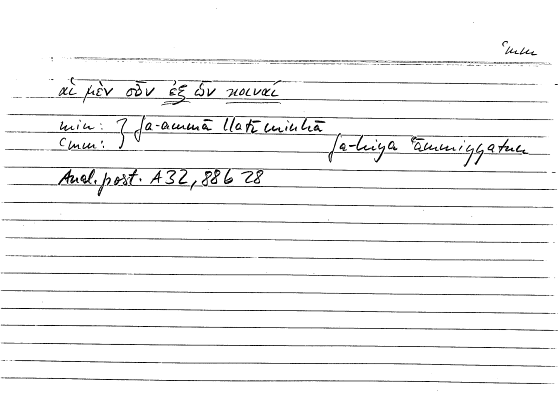 ʿmm
αἱ μὲν οὖν ἐξ ὧν κοιναί
min: } fa-ammā llatī minhā
ʿmm: fa-hiya ʿāmmiyyatun
Anal. post. A 32, 88b 28